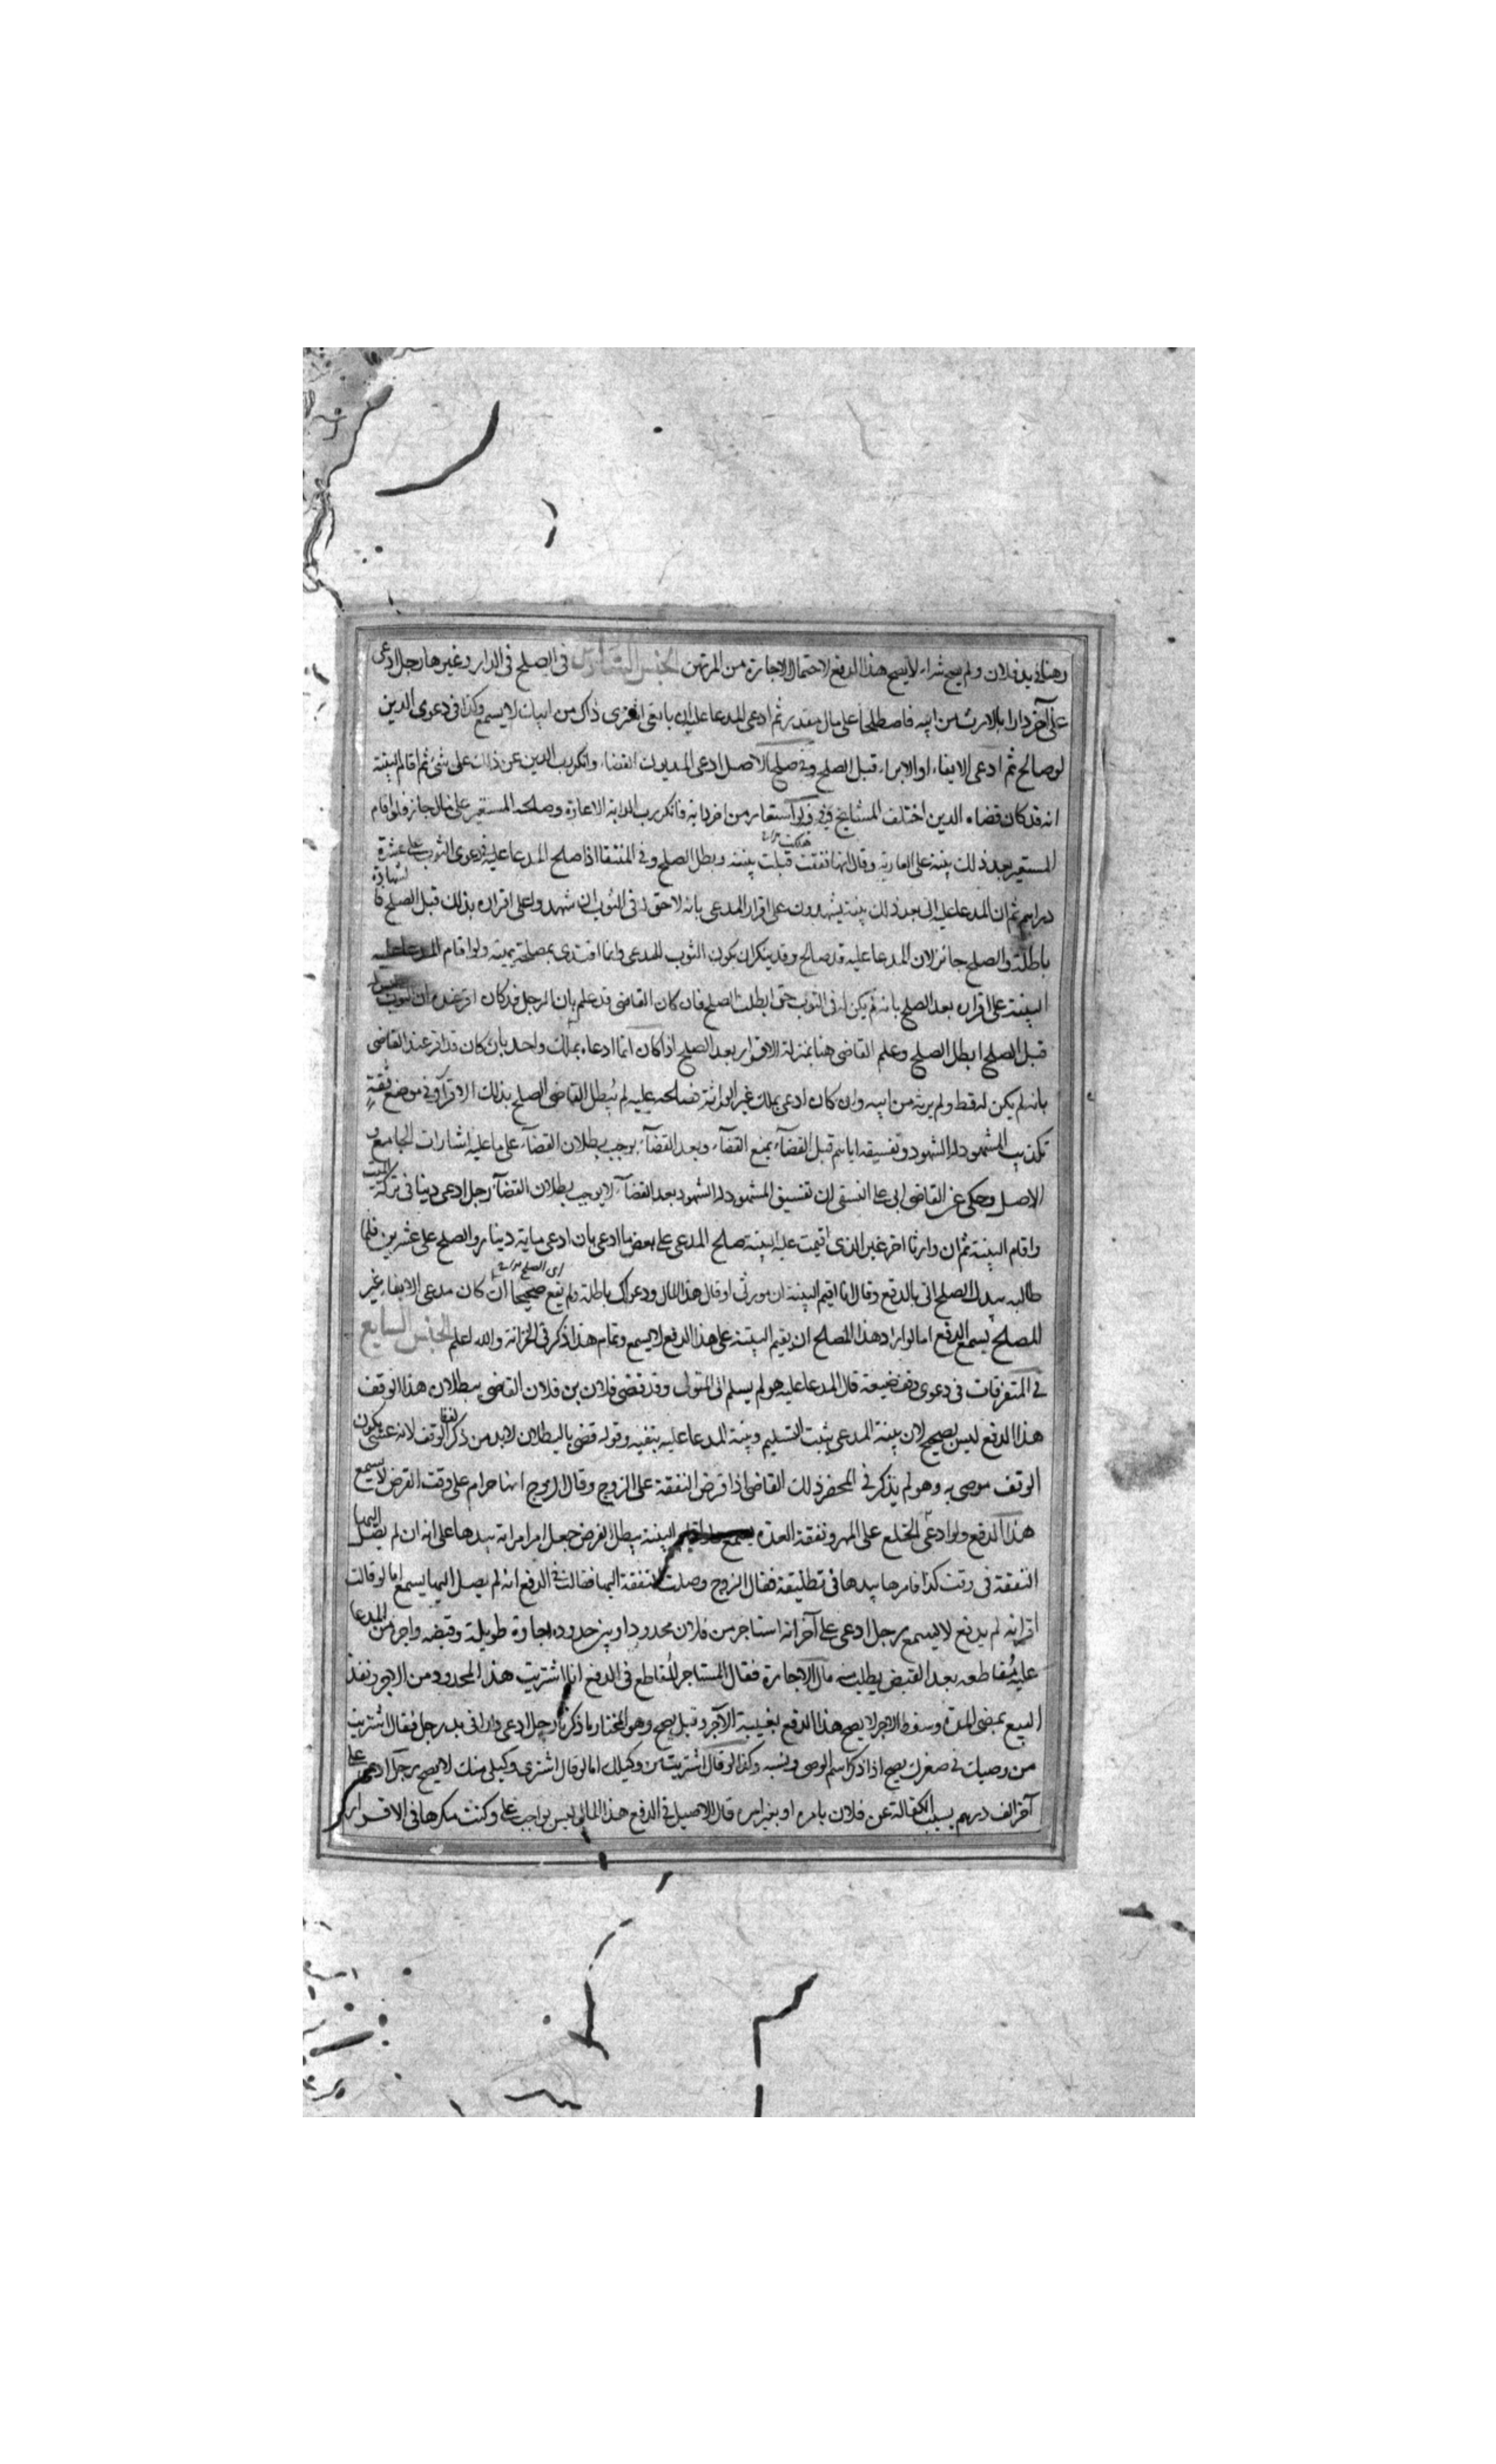 رهنا في يد فلان ولم يصح شراء لا يصح هذا الدفع لاحتمال الاجازة من المرتهن الجنس السادس في الصلح في الدار وغيرها رجل ادعى
على آخر دارا بالارث من ابيه فاصطلحا على مال مقدر ثم ادعى المدعا عليه ان بايعي اشترى ذاك من ابيك لا يسمع وكذا في دعوى الدين
لو صالح ثم ادعى الايفاء او الابراء قبل الصلح وفي صلح الاصل ادعى المديون القضاء وانكر رب الدين عن ذلك على شئ ثم اقام البينة
انه قد كان قضاه الدين اختلف المشايخ فيه ولو استعار من اخر دابة فانكر رب الدابة الاعارة وصالحه المستعير على مال جاز فلو اقام
المستعير بعد ذلك بينة على العارية وقال انها نفقت قبلت بينته وبطل الصلح وفي المنتقا اذا صلح المدعا عليه في دعوى الثوب على عشرة
دراهم ثم ان المدعا عليه اتى بعد ذلك بينة يشهدون على اقرار المدعي بانه لا حق له في الثوب ان شهدوا على اقراره بذلك قبل الصلح فالشهادة
باطلة والصلح جائز لان المدعا عليه قد صالح وقد ينكر ان يكون الثوب للمدعي وانما افتدى بمصلحته يمينه ولو اقام المدعا عليه
البينة على اقراره بعد الصلح بانه لم يكن له في الثوب حق ابطلت الصلح فان كان القاضي قد علم بان الرجل قد كان اقر عنده ان الثوب ليس له
قبل الصلح ابطل الصلح وعلم القاضي هنا بمنزلة الاقرار بعد الصلح اذا كان انما ادعاه بملك واحد بان كان قد اقر عند القاضي
بانه لم يكن له قط ولم يرثه من ابيه وان كان ادعى بملك غير الوراثة فصالحه عليه لم يبطل القاضي الصلح بذلك الاقرار وفي موضع ثقة
تكذيب المشهود له الشهود وتفسيقه اياهم قبل القضآء يمنع القضآء وبعد القضآء يوجب بطلان القضآء على ما عليه اشارات الجامع و
الاصل وحكى عن القاضي ابي على النسفي ان تفسيق المشهود له الشهود بعد القضآء لا يوجب بطلان القضآء رجل ادعى دينا في تركة الميت
واقام البينة ثم ان وارثا اخر غير الذي اقيمت عليه البينة صلح المدعي على بعض ما ادعى بان ادعى ماية دينار والصلح على عشرين فلما
طالبه ببدل الصلح اتى بالدفع وقال انا اقيم البينة ان مورثي او قال هذا المال ودعواك باطلة ولم يقع صحيحا اي الصلح ان كان مدعي الايفاء غير
المصلح يسمع الدفع اما لو اراد هذا المصلح ان يقيم البينة على هذا الدفع لا يسمع وتمام هذا ذكر في الخزانة والله اعلم الجنس السابع
في المتفرقات في دعوى وقف ضيعة قال المدعا عليه هو لم يسلم الى المتولي وقد قضى فلان بن فلان القاضي ببطلان هذا الوقف
هذا الدفع ليس بصحيح لان بينة المدعي يثبت التسليم وبينة المدعا عليه ينفيه وقوله قضى بالبطلان لا بد من ذكر الوقف لانه عسى يكون
الوقف موصى به وهو لم يذكر في المحضر ذلك القاضي اذا فرض النفقة على الزوج وقال الزوج انها حرام على وقت الفرض لا يسمع
هذا الدفع ولو ادعى الخلع على المهر ونفقة العدة يسمع البينة يبطل الفرض جعل امر امراته بيدها على انه ان لم يصل اليها
النفقة في وقت كذا فامرها بيدها في تطليقة فقال الزوج وصلت النفقة اليها فقالت في الدفع انه لم يصل اليها يسمع اما لو قالت
اقر انه لم يدفع لا يسمع رجل ادعى على آخر انه استاجر من فلان محدودا وبين حدوده اجارة طويلة وقبضه واجر من المدعا
عليه مقاطعه بعد القبض يطلب منه مال الاجارة فقال المستاجر المقاطع في الدفع انا اشتريت هذا المحدود من الاجر ونفذ
البيع بمضي المدة وسقوط الاجر لا يصح هذا الدفع بغيبة الآجر وقيل يصح وهو المختار ما ذكرنا رجل ادعى دارا في يد رجل فقال اشتريت
من وصيك في صغرك يصح اذا ذكر اسم الوصي ونسبه وكذا لو قال اشتريت من وكيلك اما لو قال اشترى وكيلي منك لا يصح رجل ادعى على
آخر الف درهم بسبب الكفالة عن فلان بامره او بغير امره قال الاصيل في الدفع هذا المال ليس بواجب على وكنت مكرها في الاقرار